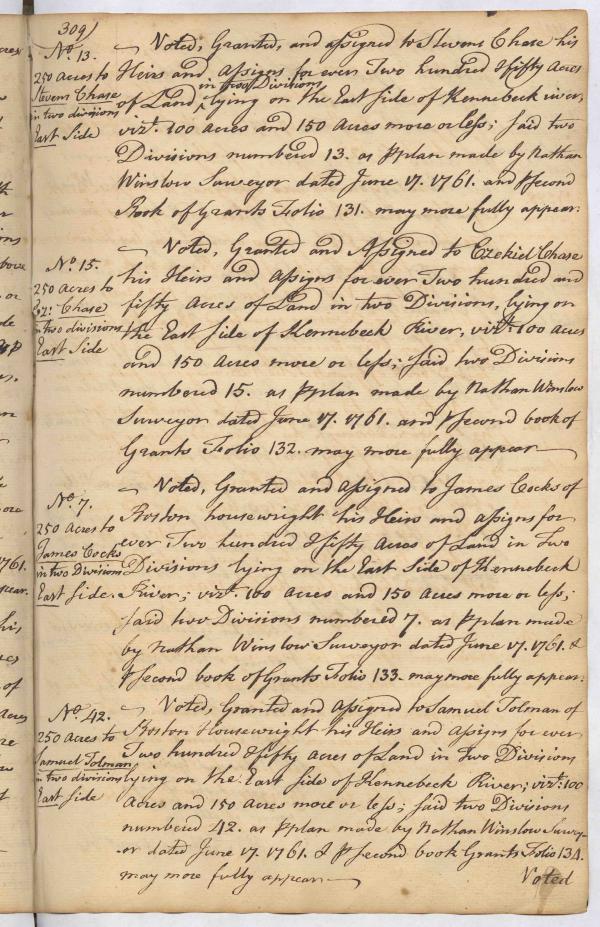 309)
No. 13.
250 Acres to
Stevens Chase
in two divisions
East Side
Voted, Granted, and assigned to Stevens Chase his
Heirs and Assigns for ever Two hundred & fifty Acres
in two Divisions
of Land, lying on the East side of Kennebeck river,
vizt. 100 Acres and 150 Acres more or less; said two
Divisions numbered 13. as ⅌ plan made by Nathan
Winslow Surveyor dated June 17. 1761. and ⅌ Second
Book of Grants Folio 131. may more fully appear.
No. 15.
250 Acres to
Ezl: Chase
in two divisions
East Side
Voted, Granted and Assigned to Ezekiel Chase
his Heirs and Assigns for ever Two hundred and
fifty Acres of Land in two Divisions, lying on
the East side of Kennebeck River, vizt. 100 Acres
and 150 Acres more or less; said two Divisions
numbered 15. as ⅌ plan made by Nathan Winslow
Surveyor dated June 17. 1761. and ⅌ Second book of
Grants Folio 132. may more fully appear
No. 7.
250 Acres to
James Cocks
in two Divisions
East Side.
Voted, Granted and assigned to James Cocks of
Boston housewright his Heirs and assigns for
ever Two hundred & fifty Acres of Land in Two
Divisions lying on the East Side of Kennebeck
River; vizt. 100 Acres and 150 Acres more or less;
said two Divisions numbered 7. as ⅌ plan made
by Nathan Winslow Surveyor dated June 17. 1761. &
⅌ Second book of Grants Folio 133. may more fully appear.
No. 42.
250 Acres to
Samuel Tolman
in two divisions
East Side
Voted, Granted and Assigned to Samuel Tolman of
Boston Housewright his Heirs and Assigns for ever
Two hundred & fifty Acres of Land in Two Divisions
lying on the East Side of Kennebeck River; vizt. 100
Acres and 150 Acres more or less; said two Divisions
numbered 42. as ⅌ plan made by Nathan Winslow Survey-
or dated June 17. 1761. & ⅌ second book Grants Folio 134.
may more fully appear
Voted